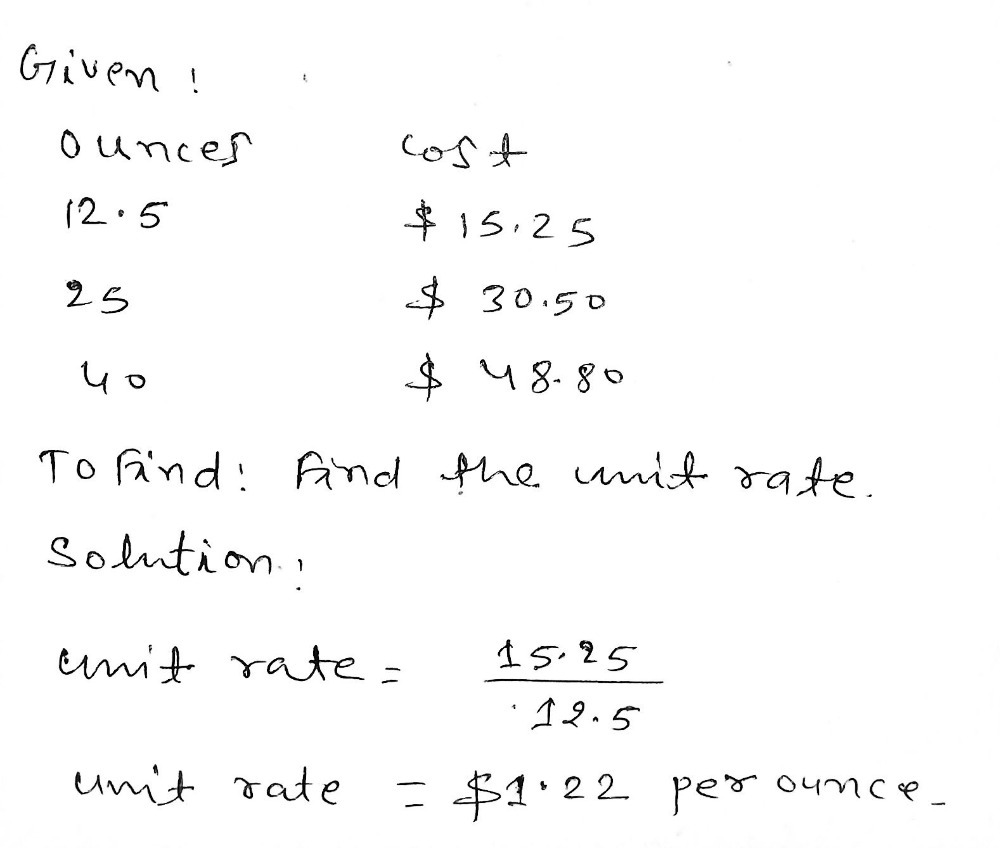 Given :
ounces cost
12.5 $ 15.25
25 $ 30.50
40 $ 48.80
To find : find the unit rate.
Solution :
unit rate = 15.25 / 12.5
unit rate = $1.22 per ounce.